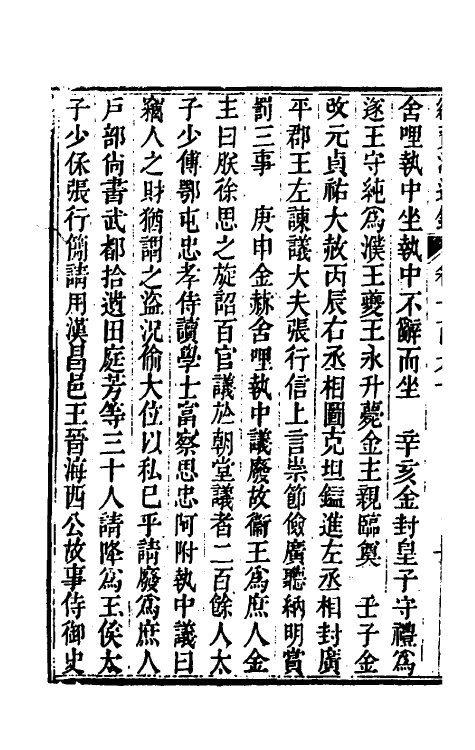 舍哩執中坐執中不辭而坐　辛亥金封皇子守禮爲
遂王守純爲濮王夔王永升薨金主親臨奠　壬子金
改元貞祐大赦丙辰右丞相圖克坦鎰進左丞相封廣
平郡王左諫議大夫張行信上言崇節儉廣聽納明賞
罰三事　庚申金赫舍哩執中議廢故衞王爲庶人金
主曰朕徐思之旋詔百官議於朝堂議者二百餘人太
子少傅鄂屯忠孝侍讀學士富察思忠阿附執中議曰
竊人之財猶謂之盜況偷大位以私已乎請廢爲庶人
戶部尚書武都拾遺田庭芳等三十人請降爲王侯太
子少保張行簡請用漢昌邑王晉海西公故事侍御史